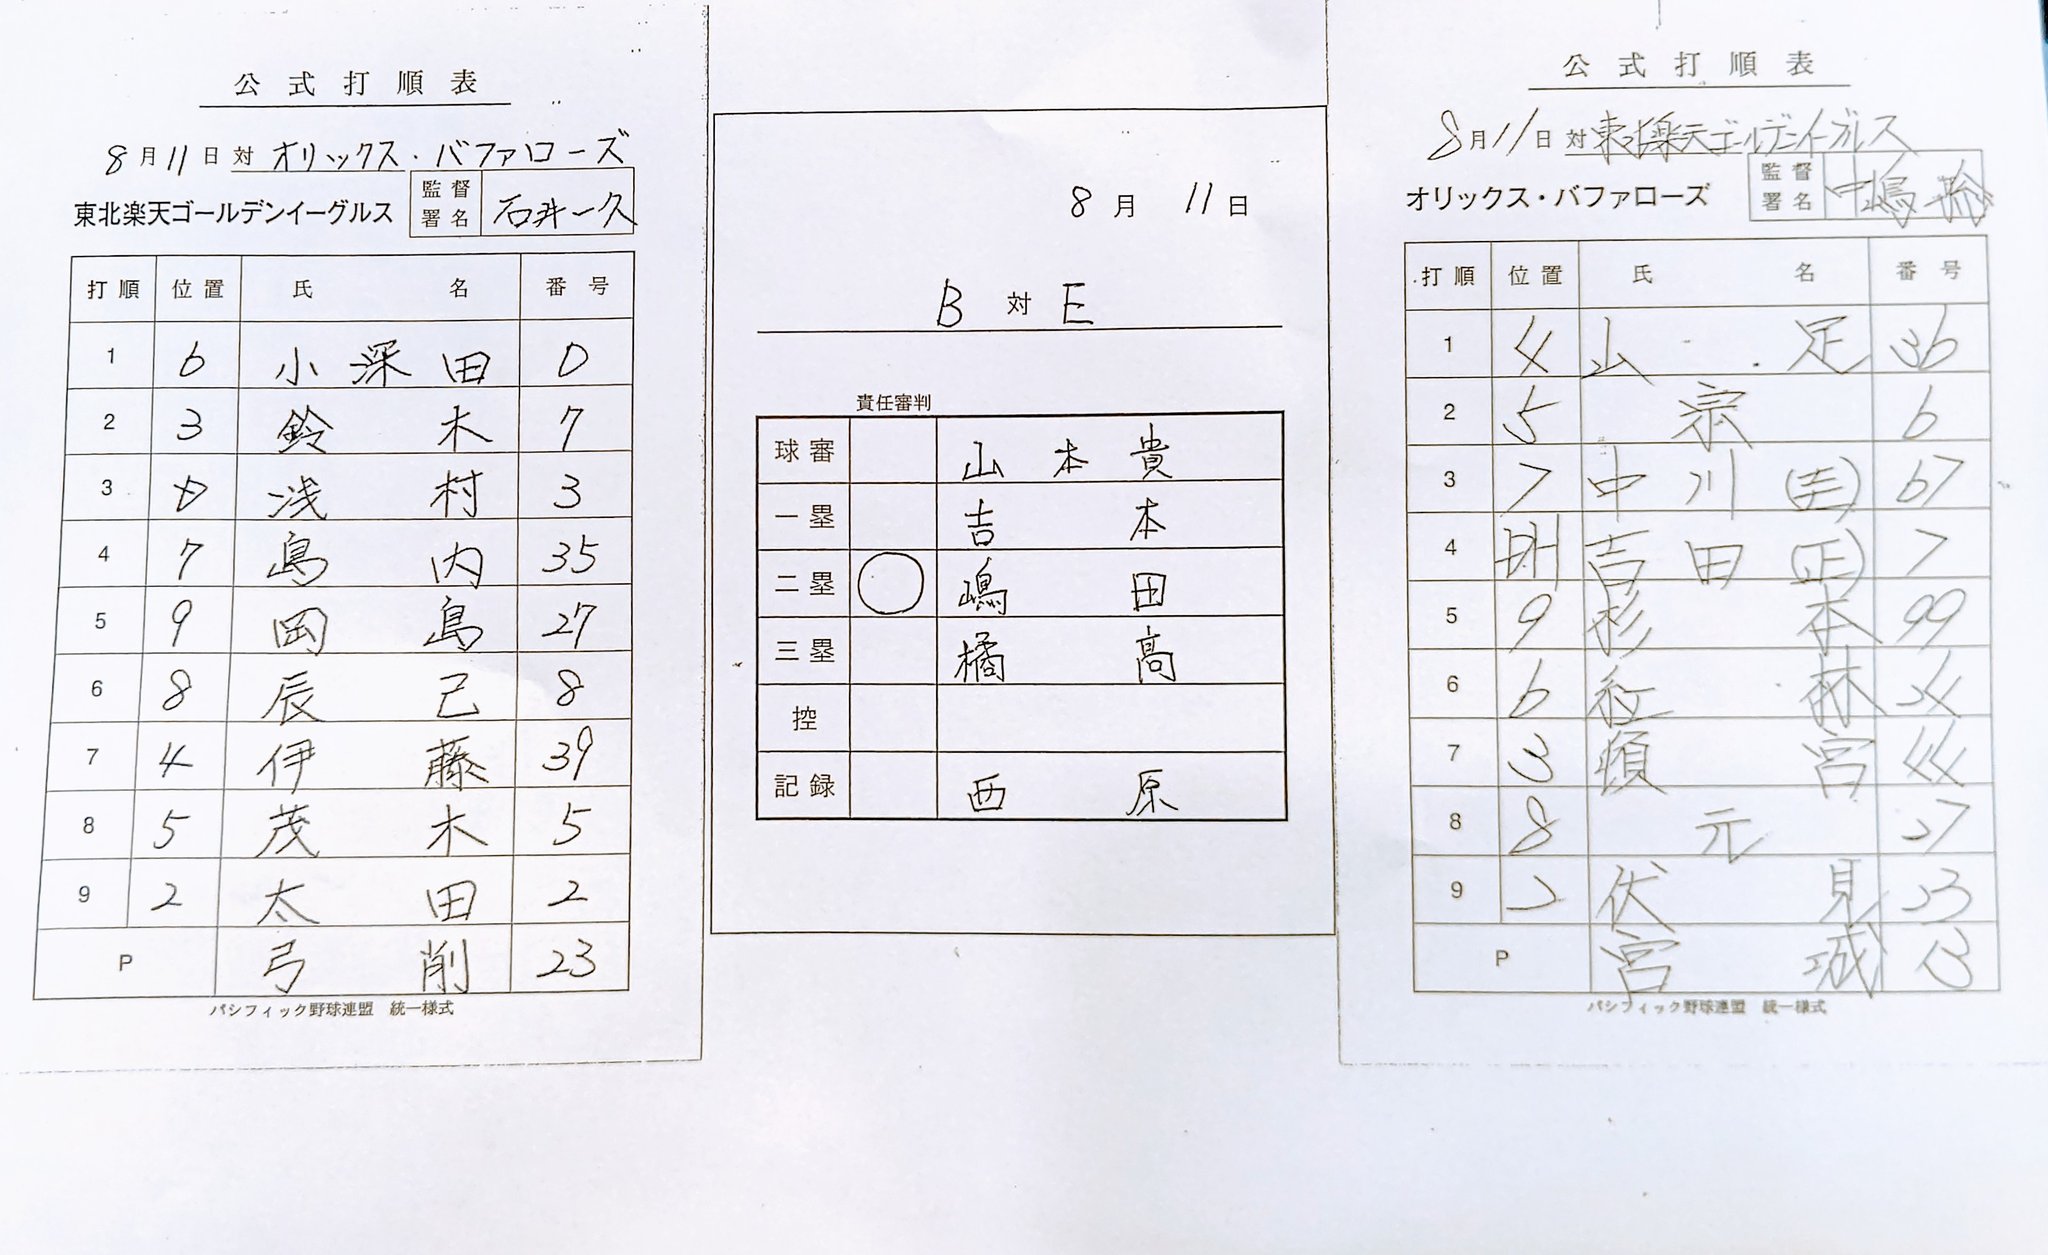 公式打順表
8月11日対オリックス・バファローズ
東北楽天ゴールデンイーグルス 監督署名 石井一久
打順 位置 氏名 番号
1 6 小深田 0
2 3 鈴木 7
3 D 浅村 3
4 7 島内 35
5 9 岡島 27
6 8 辰己 8
7 4 伊藤 39
8 5 茂木 5
9 2 太田 2
P 弓削 23
パシフィック野球連盟 統一様式
8月 11日
B 対 E
責任審判
球審 山本貴
一塁 吉本
二塁 ○ 嶋田
三塁 橘高
控
記録 西原
公式打順表
8月11日対東北楽天ゴールデンイーグルス
オリックス・バファローズ 監督署名 中嶋聡
打順 位置 氏名 番号
1 4 山足 36
2 5 宗 6
3 7 中川(圭) 67
4 DH 吉田(正) 7
5 9 杉本 99
6 6 紅林 24
7 3 頓宮 44
8 8 元 27
9 2 伏見 23
P 宮城 13
パシフィック野球連盟 統一様式